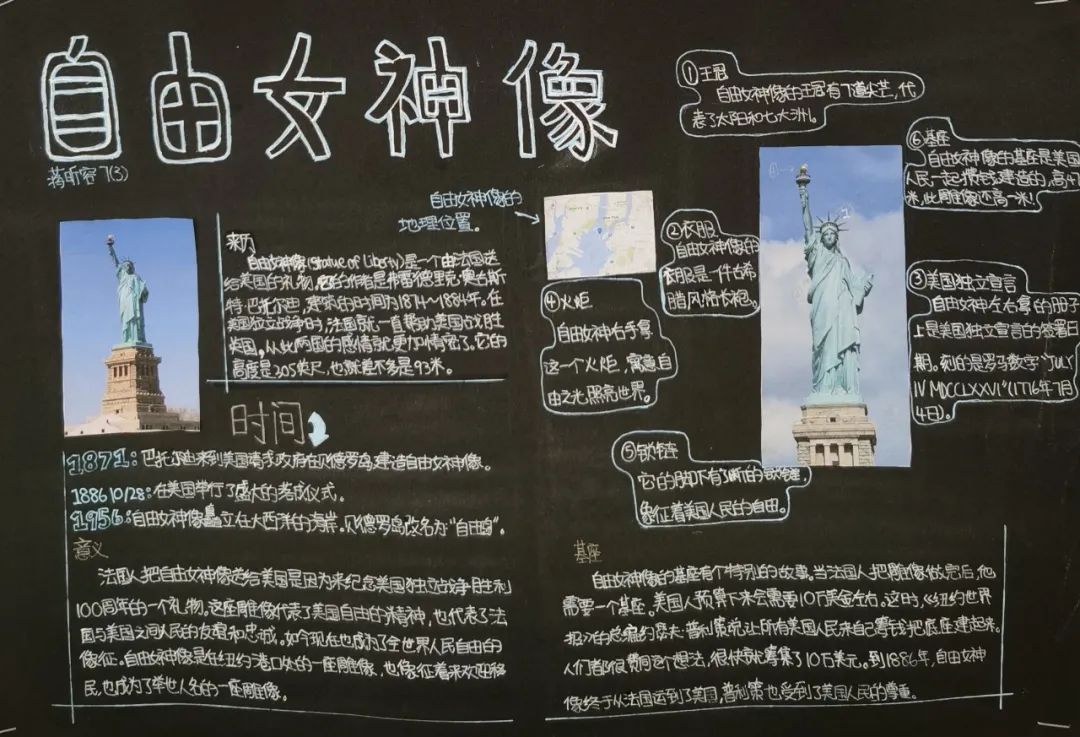 自由女神像
蒋昕容 7(3)
来历
自由女神像(Statue of Liberty)是一个由法国送
给美国的礼物,它的作者是弗雷德里克·奥古斯
特·巴托尔迪,建筑的时间为1874~1884年。在
美国独立战争时,法国就一直帮助美国战胜
英国,从此两国的感情就更加情密了。它的
高度是305英尺,也就差不多是93米。
时间
1871:巴托尔迪来到美国请求政府在贝德罗岛建造自由女神像。
1886 10/28:在美国举行了盛大的落成仪式。
1956:自由女神像矗立在大西洋的海岸。贝德罗岛改名为“自由岛”。
意义
法国人把自由女神像送给美国是因为来纪念美国独立战争胜利
100周年的一个礼物。这座雕像代表了美国自由的精神,也代表了法
国与美国之间人民的友谊和忠诚。如今现在也成为了全世界人民自由的
像征。自由女神像是在纽约港口处的一座雕像,也像征着来欢迎移
民,也成为了举世人名的一座雕像。
自由女神像的
地理位置。
①王冠
自由女神像的王冠有7道光芒,代
表了太阳和七大洲。
②衣服
自由女神像的
衣服是一件古希
腊风格长袍。
④火炬
自由女神右手拿
这一个火炬,寓意自
由之光照亮世界。
⑤锁链
它的脚下有了断的锁链,
像征着美国人民的自由。
⑥基座
自由女神像的基座是美国
人民一起攒钱建造的,高47
米,比雕像还高一米!
③美国独立宣言
自由女神左右拿的册子
上是美国独立宣言的签署日
期。刻的是罗马数字“JULY
IV MDCCLXXVI”(1776年7月
4日)。
基座
自由女神像的基座有个特别的故事。当法国人把雕像做完后,他
需要一个基座。美国人预算下来会需要10万美金左右。这时,《纽约世界
报》的总编约瑟夫·普利策就让所有美国人民来自己筹钱把底座建起来。
人们都很赞同这个想法,很快就筹集了10万美元。到1886年,自由女神
像终于从法国运到了美国,普利策也受到了美国人民的尊重。